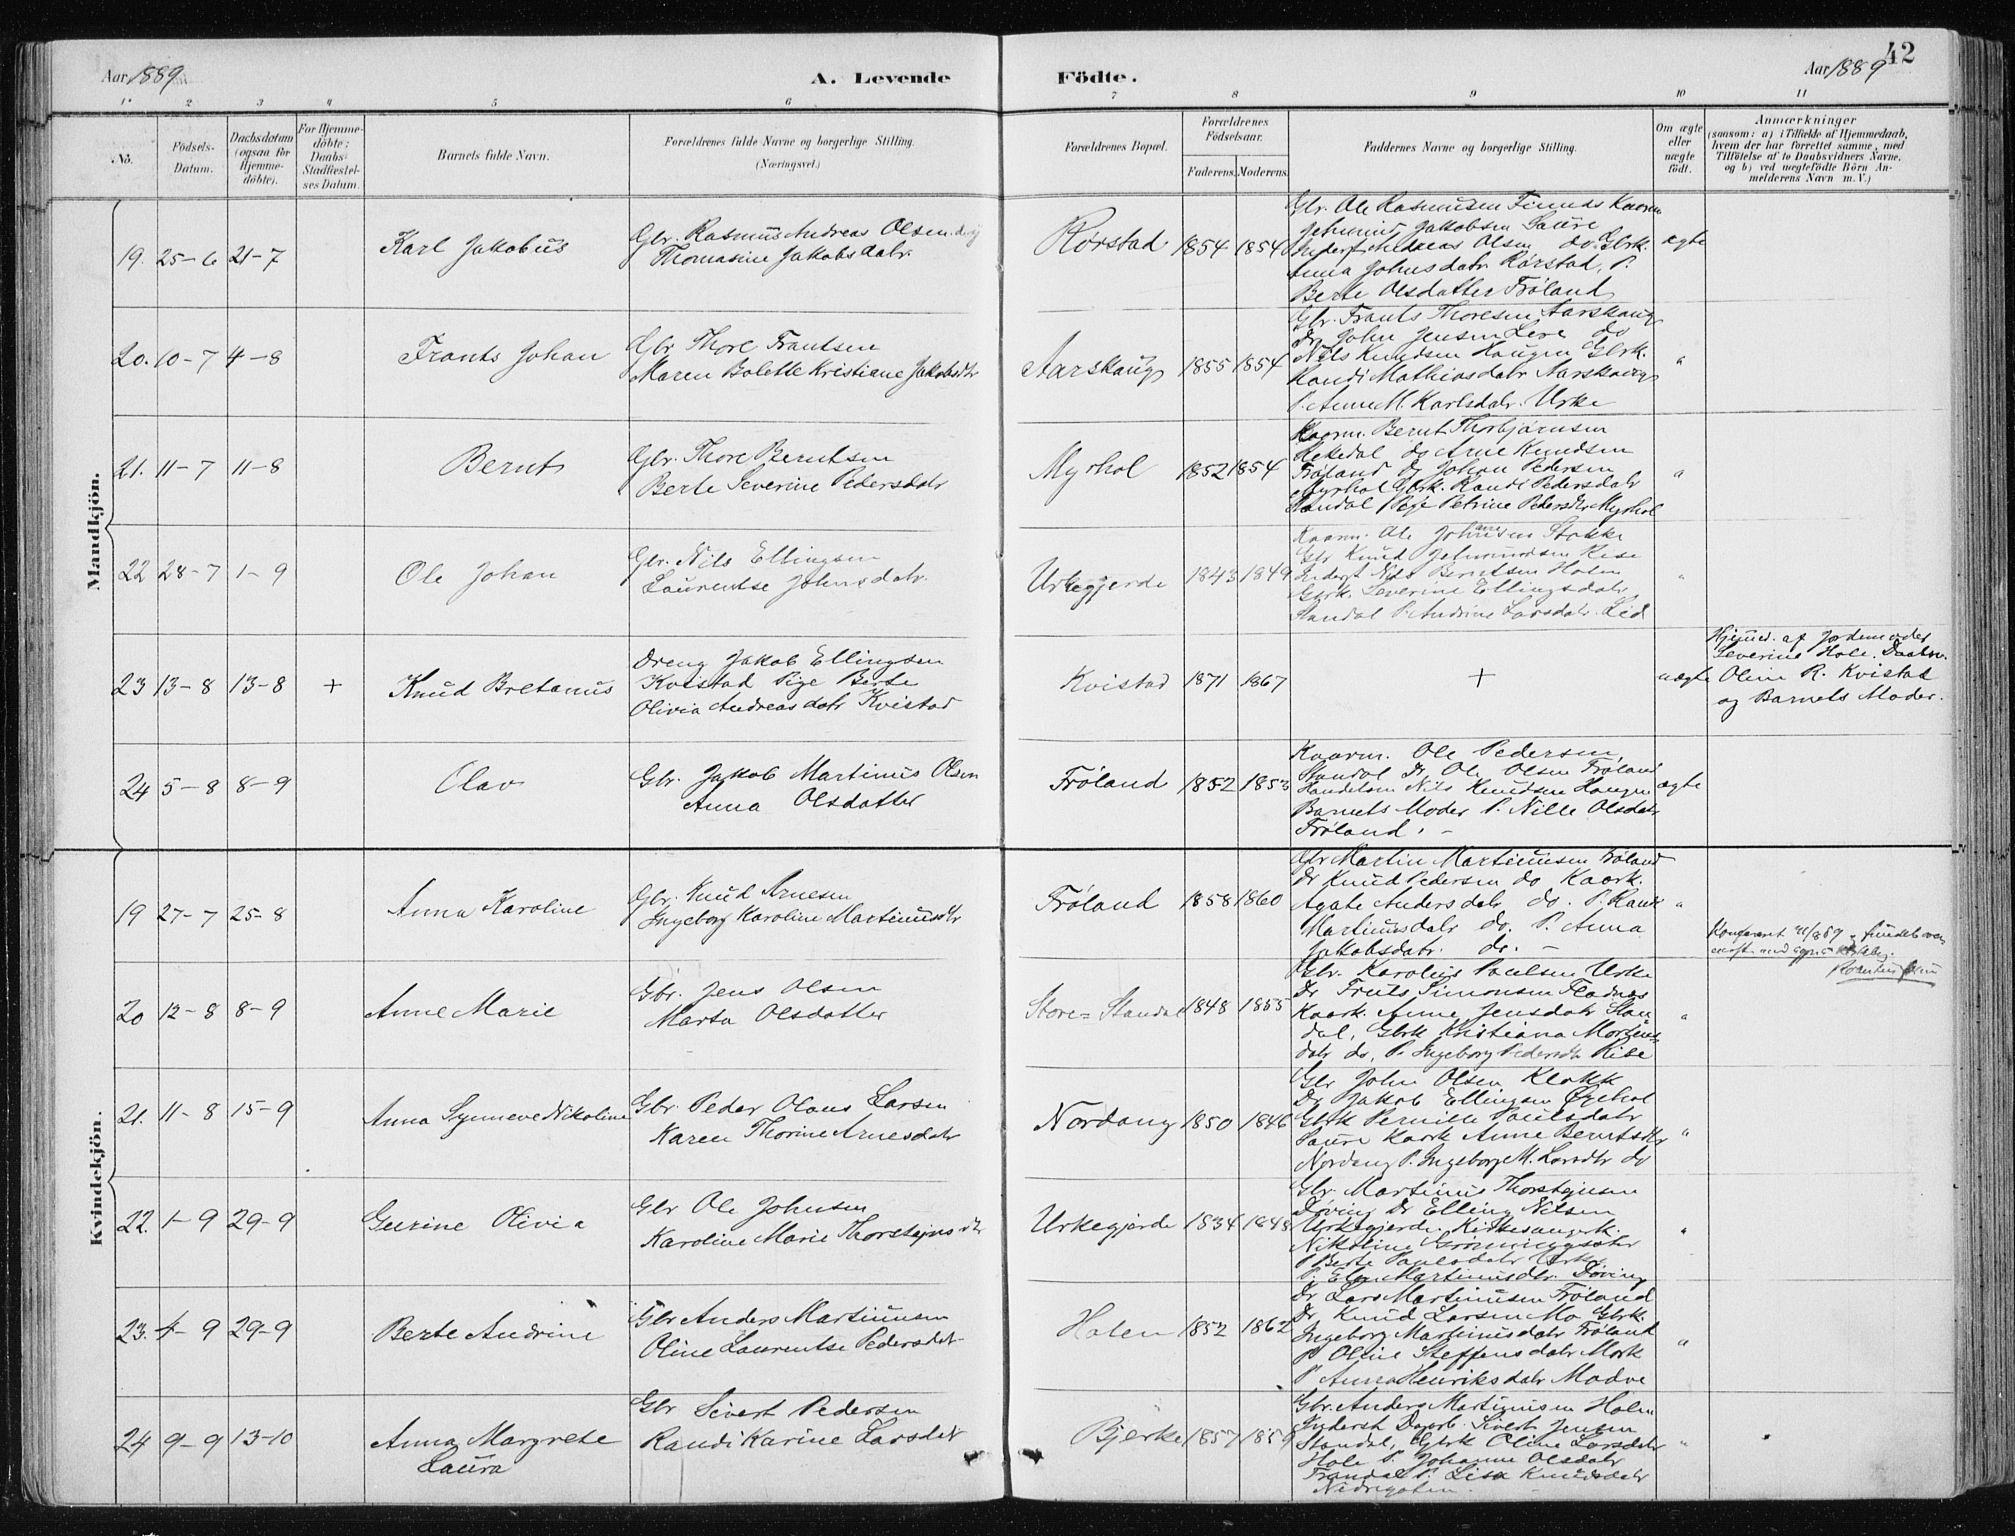 Aar 1889
A. Levende
Födte.
Aar 1889
42
1
2
3
4
5
6
7
8
9
10
11
No.
Födsels-Datum.
Daabsdatum (ogsaa for Hjemme-döbte).
For Hjemme-döbte; Daabs-Stadfæstel-ses Datum.
Barnets fulde Navn.
Forældrenes fulde Navne og borgerlige Stilling.
(Næringsvei.)
Forældrenes Bopæl.
Forældrenes Födselsaar.
Faderens. Moderens.
Faddernes Navne og borgerlige Stilling.
Om ægte eller uægte födt.
Anmærkninger
(saasom: a) i Tilfælde af Hjemmedaab, hvem der har forrettet samme, med Tilföielse af to Daabsvidners Navne, og b) ved uægtefödte Börn An-melderens Navn m. V.)
Mandkjön.
19. 25-6 21-7
Karl Jakobus
Gbr. Rasmus Andreas Olsen og
Thomasine Jakobsdatr.
Rørstad 1854 1854
Gbr. Ole Rasmussen Finnes Kaarm
Jetmund Jakobsen Saure
Inderst Andreas Olsen do. Gbrk.
Anna Johnsdatr Rørstad, P.
Berte Olsdatter Frøland
ægte
20. 10-7 4-8
Frants Johan
Gbr. Thore Frantsen
Maren Bolette Kristiane Jakobsdtr
Aarskaug 1855 1854
Gbr. Frants Thoresen Aarskaug
Dr. John Jensen Leve do
Nils Knudsen Haugen Gbrk.
Randi Mathiasdatr Aarskaug
P. Anne M. Karlsdatr. Urke
"
21. 11-7 11-8
Bernt
Gbr. Thore Berntsen
Berte Severine Pedersdatr
Myrhol 1852 1854
Kaarm. Bernt Thorbjørnsen
Arne Knudsen
Frøland Dg Johan Pedersen
Myrhol Gbrk. Randi Pedersdatr
Standal Pige Petrine Pedersdtr Myrhol
"
22 28-7 1-9
Ole Johan
Gbr. Nils Ellingsen
Laurentse Johnsdatr.
Urkegjerde 1843 1849
Kaarm. Ole Johnsen Stokke
Gbr Knud Jetmundsen Rise
Inderst Nils Berntsen Holen
Gbrk. Severine Ellingsdatr
Standal P. Andrine Larsdatr. Leid
"
23 13-8 13-8 +
Knud Bretanus
Dreng Jakob Ellingsen
Kvistad Pige Berte
Olivia Andreasdatr Kvistad
Kvistad 1871 1867
+
uægte
Hjemd. af Jordemoder
Severine Hole. Daabv.
Oline R. Kvistad
og Barnets Moder.
24 5-8 8-9
Olav
Gbr. Jakob Martinus Olsen
Anna Olsdatter
Frøland 1852 1853
Kaarm. Ole Pedersen
Standal Dr. Ole Olsen Frøland
Handelsm Nils Knudsen Haugen
Barnets Moder P. Nille Olsdatr
Frøland. –
ægte
Kvindekjön.
19 27-7 25-8
Anna Karoline
Gbr. Knud Arnesen
Ingeborg Karoline Martinusdtr
Frøland 1858 1860
Gbr Martin Martinusen Frøland
Dr Knud Pedersen do Kaark.
Agate Andersdatr do. P. Randi
Martinusdatr do. P. Anna
Jakobsdatr. do. –
"
20 12-8 8-9
Anne Marie
Gbr. Jens Olsen
Marta Olsdatter
Store-Standal 1848 1855
Gbr. Karolius Paulsen Urke
Dr Fruts Simonsen Fladnes
Kaark. Anne Jensdatr Stan-
dal, Gbrk Kristiana Mortens-
datr do, P. Ingeborg Pedersdtr Rise
"
21. 11-8 15-9
Anna Synneve Nikoline
Gbr. Peder Olaus Larsen
Karen Thorine Arnesdatr
Nordang 1850 1846
Gbr John Olsen Klokk
Dr Jakob Ellingsen Øyehol
Gbrk Pernille Paulsdatr
Saure Kaark Anne Berntsdtr
Nordang P. Ingeborg M. Larsdtr do
"
22. 1-9 29-9
Gurine Olivia
Gbr Ole Johnsen
Karoline Marie Thorstejnsdtr
Urkegjerde 1834 1848
Gbr. Martinus Thorstejnsen
Døving Dr Elling Nilsen
Urkegjerde, Kirkesangerk.
Nikoline
P Berte Paulsdatr Urke
P. Elen Martinusdtr. Døving
"
23. 4-9 29-9
Berte Andrine
Gbr Anders Martinusen
Oline Laurentse Pedersdatr
Holen 1852 1862
Dr Lars Martinusen Frøland
Dr Knud Larsen Mo Gbrk.
Ingeborg Martinusdatr Frøland
P Oline Steffensdatr Mork
P. Anna Henriksdatr Modve
"
24 9-9 13-10
Anna Margrete
Laura
Gbr Sivert Pedersen
Randi Karine Larsdatr
Bjerke 1857 1859
Gbr. Anders Martinusen Holen
Inderst Sivert Jensen
Standal, Gbrk Oline Larsdatr
Hole P. Johanne Olsdatr
Trandal P. Lisa Knudsdatr
"